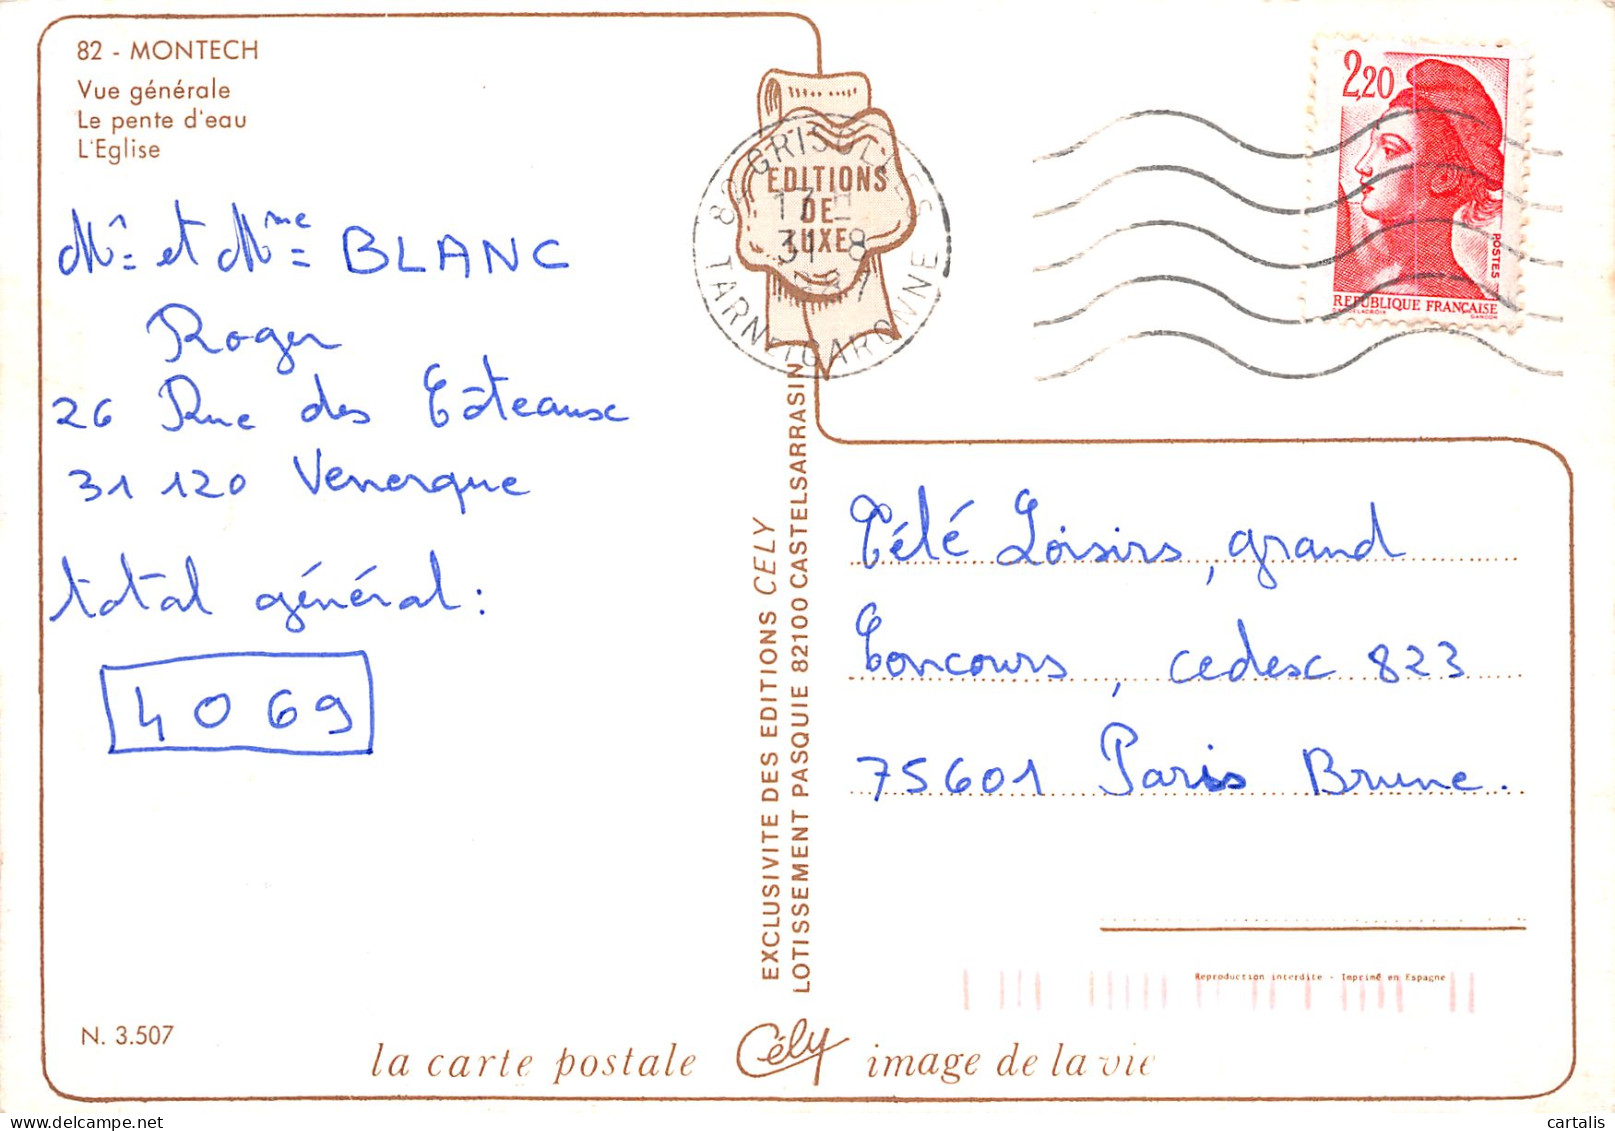 82 - MONTECH
Vue générale
Le pente d'eau
L'Eglise
Mr et Mme BLANC
Roger
26 Rue des Côteaux
31 120 Venerque
total général :
4069
N. 3.507
EDITIONS
DE
LUXE
82 GRISOLLES
17 H
31-8
1987
TARN ET GARONNE
EXCLUSIVITE DES EDITIONS CELY
LOTISSEMENT PASQUIE 82100 CASTELSARRASIN
2,20
POSTES
REPUBLIQUE FRANÇAISE
D'APRES DELACROIX
GANDON
Télé Loisirs, grand
Concours, cedex 823
75601 Paris Brune.
Reproduction interdite - Imprimé en Espagne
la carte postale Cély image de la vie
cartalis